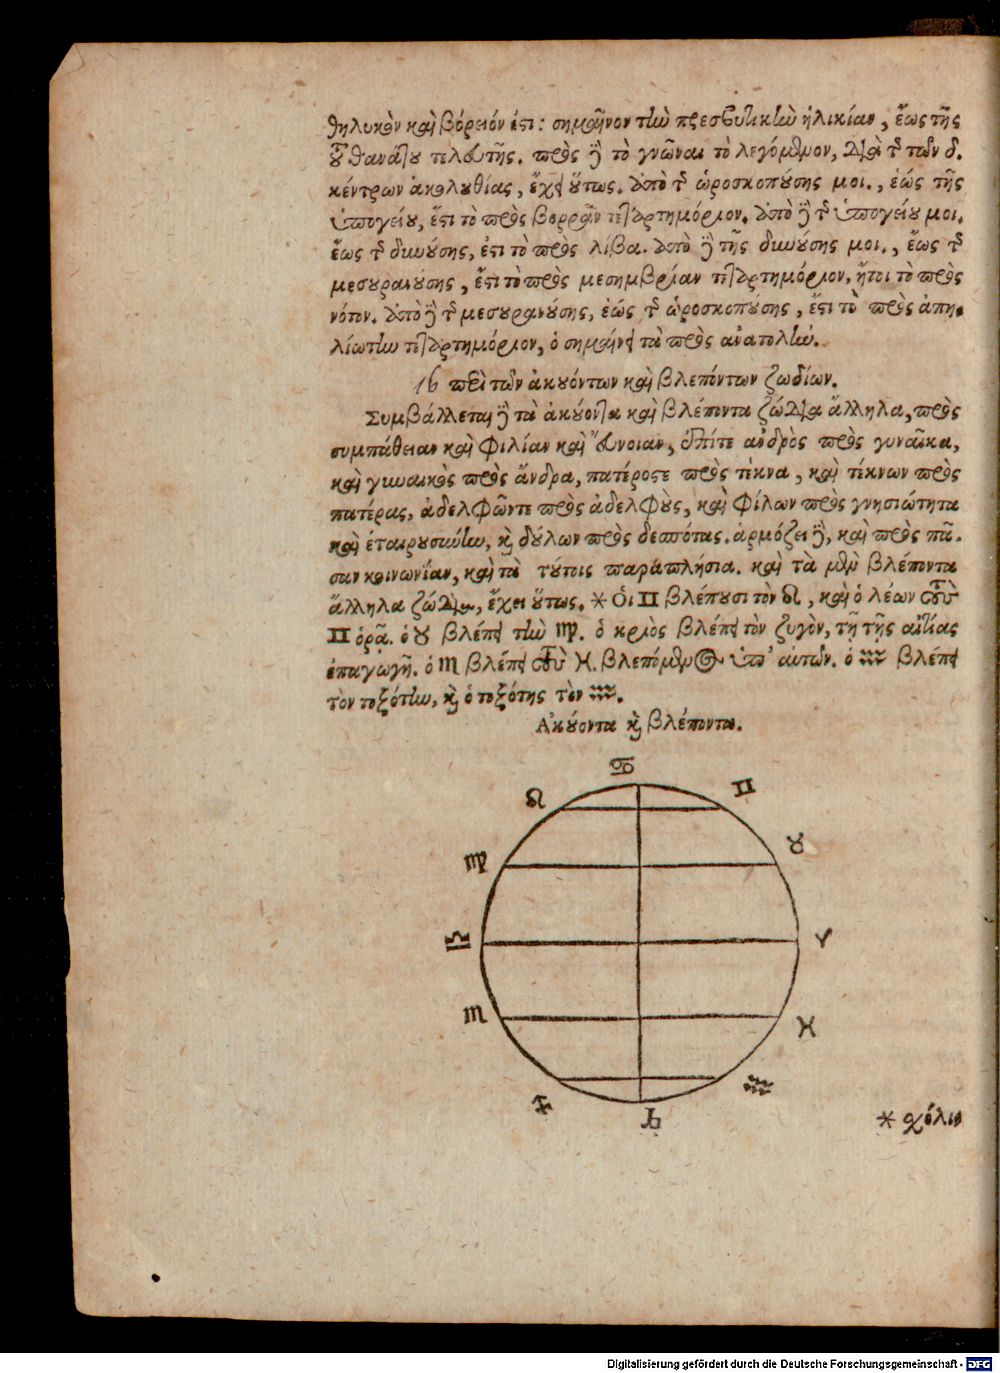 θηλυκὸν καὶ βόρειόν ἐστι: σημαῖνον τὴν πρεσβυτικὴν ἡλικίαν, ἕως τῆς
τοῦ θανάτου τελευτῆς. πρὸς δὲ τὸ γνῶναι τὸ λεγόμενον, διὰ τῆς τῶν δ.
κέντρων ἀκολουθίας, ἔχει οὕτως. ἀπὸ τῆς ὡροσκοπούσης μοι., ἕως τῆς
ὑπογείου, ἔστι τὸ πρὸς βορρᾶν τεταρτημόριον. ἀπὸ δὲ τῆς ὑπογείου μοι.
ἕως τῆς δυνούσης, ἐστι τὸ πρὸς λίβα. ἀπὸ δὲ τῆς δυνούσης μοι., ἕως τῆς
μεσουρανούσης, ἔστι τὸ πρὸς μεσημβρίαν τεταρτημόριον, ἤτοι τὸ πρὸς
νότον. ἀπὸ δὲ τῆς μεσουρανούσης, ἕως τῆς ὡροσκοπούσης, ἔστι τὸ πρὸς ἀπη-
λιώτην τεταρτημόριον, ὁ σημαίνει τὰ πρὸς ἀνατολὴν.
16 περὶ τῶν ἀκουόντων καὶ βλεπόντων ζωδίων.
Συμβάλλεται δὲ τὰ ἀκούοντα καὶ βλέποντα ζώδια ἄλληλα, πρὸς
συμπάθειαν καὶ φιλίαν καὶ εὔνοιαν, ἐπίτε ἀνδρὸς πρὸς γυναῖκα,
καὶ γυναικὸς πρὸς ἄνδρα, πατέροστε πρὸς τέκνα, καὶ τέκνων πρὸς
πατέρας, ἀδελφῶντε πρὸς ἀδελφοὺς, καὶ φίλων πρὸς γνησιώτητα
καὶ ἑταιρουσύνην, καὶ δούλων πρὸς δεσπότας. ἁρμόζει δὲ, καὶ πρὸς πᾶ-
σαν κοινωνίαν, καὶ τὰ τούτοις παραπλήσια. καὶ τὰ μὲν βλέποντα
ἄλληλα ζώδια, ἔχει οὕτως. * Οἱ ♊ βλέπουσι τὸν ♌, καὶ ὁ λέων τοὺς
♊ ὁρᾶ. ὁ ♉ βλέπει τὴν ♍. ὁ κριὸς βλέπει τὸν ζυγὸν, τῆ τῆς αἰτίας
ἐπαγωγῆ. ὁ ♏ βλέπει τοὺς ♓. βλεπόμενος ὑπ' αὐτῶν. ὁ ♒ βλέπει
τὸν τοξότην, καὶ ὁ τοξότης τὸν ♒.
Ἀκούοντα καὶ βλέποντα.
♋
♌ ♊
♍ ♉
♎ ♈
♏ ♓
♐ ♒
♑
* σχόλιο
Digitalisierung gefördert durch die Deutsche Forschungsgemeinschaft - DFG